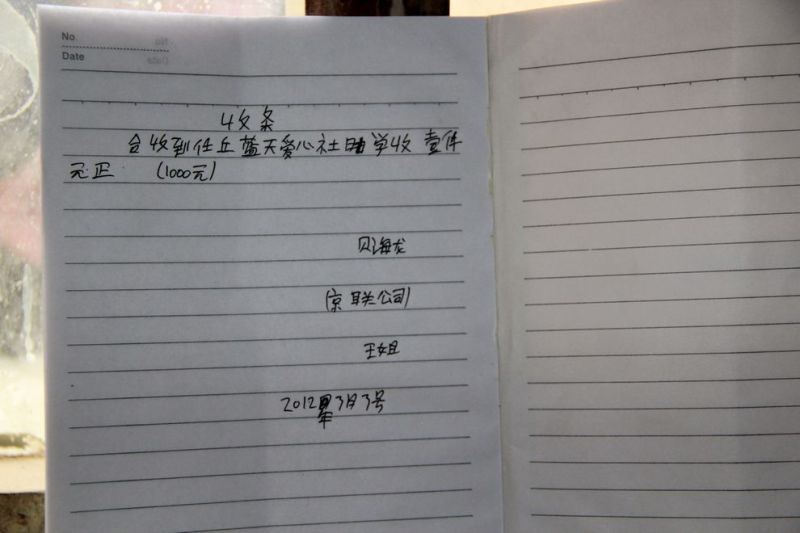 No
Date
收条
今收到任丘蓝天爱心社助学收 壹仟
元正 (1000元)
贝海龙
(京联公司)
王姐
2012年3月3号